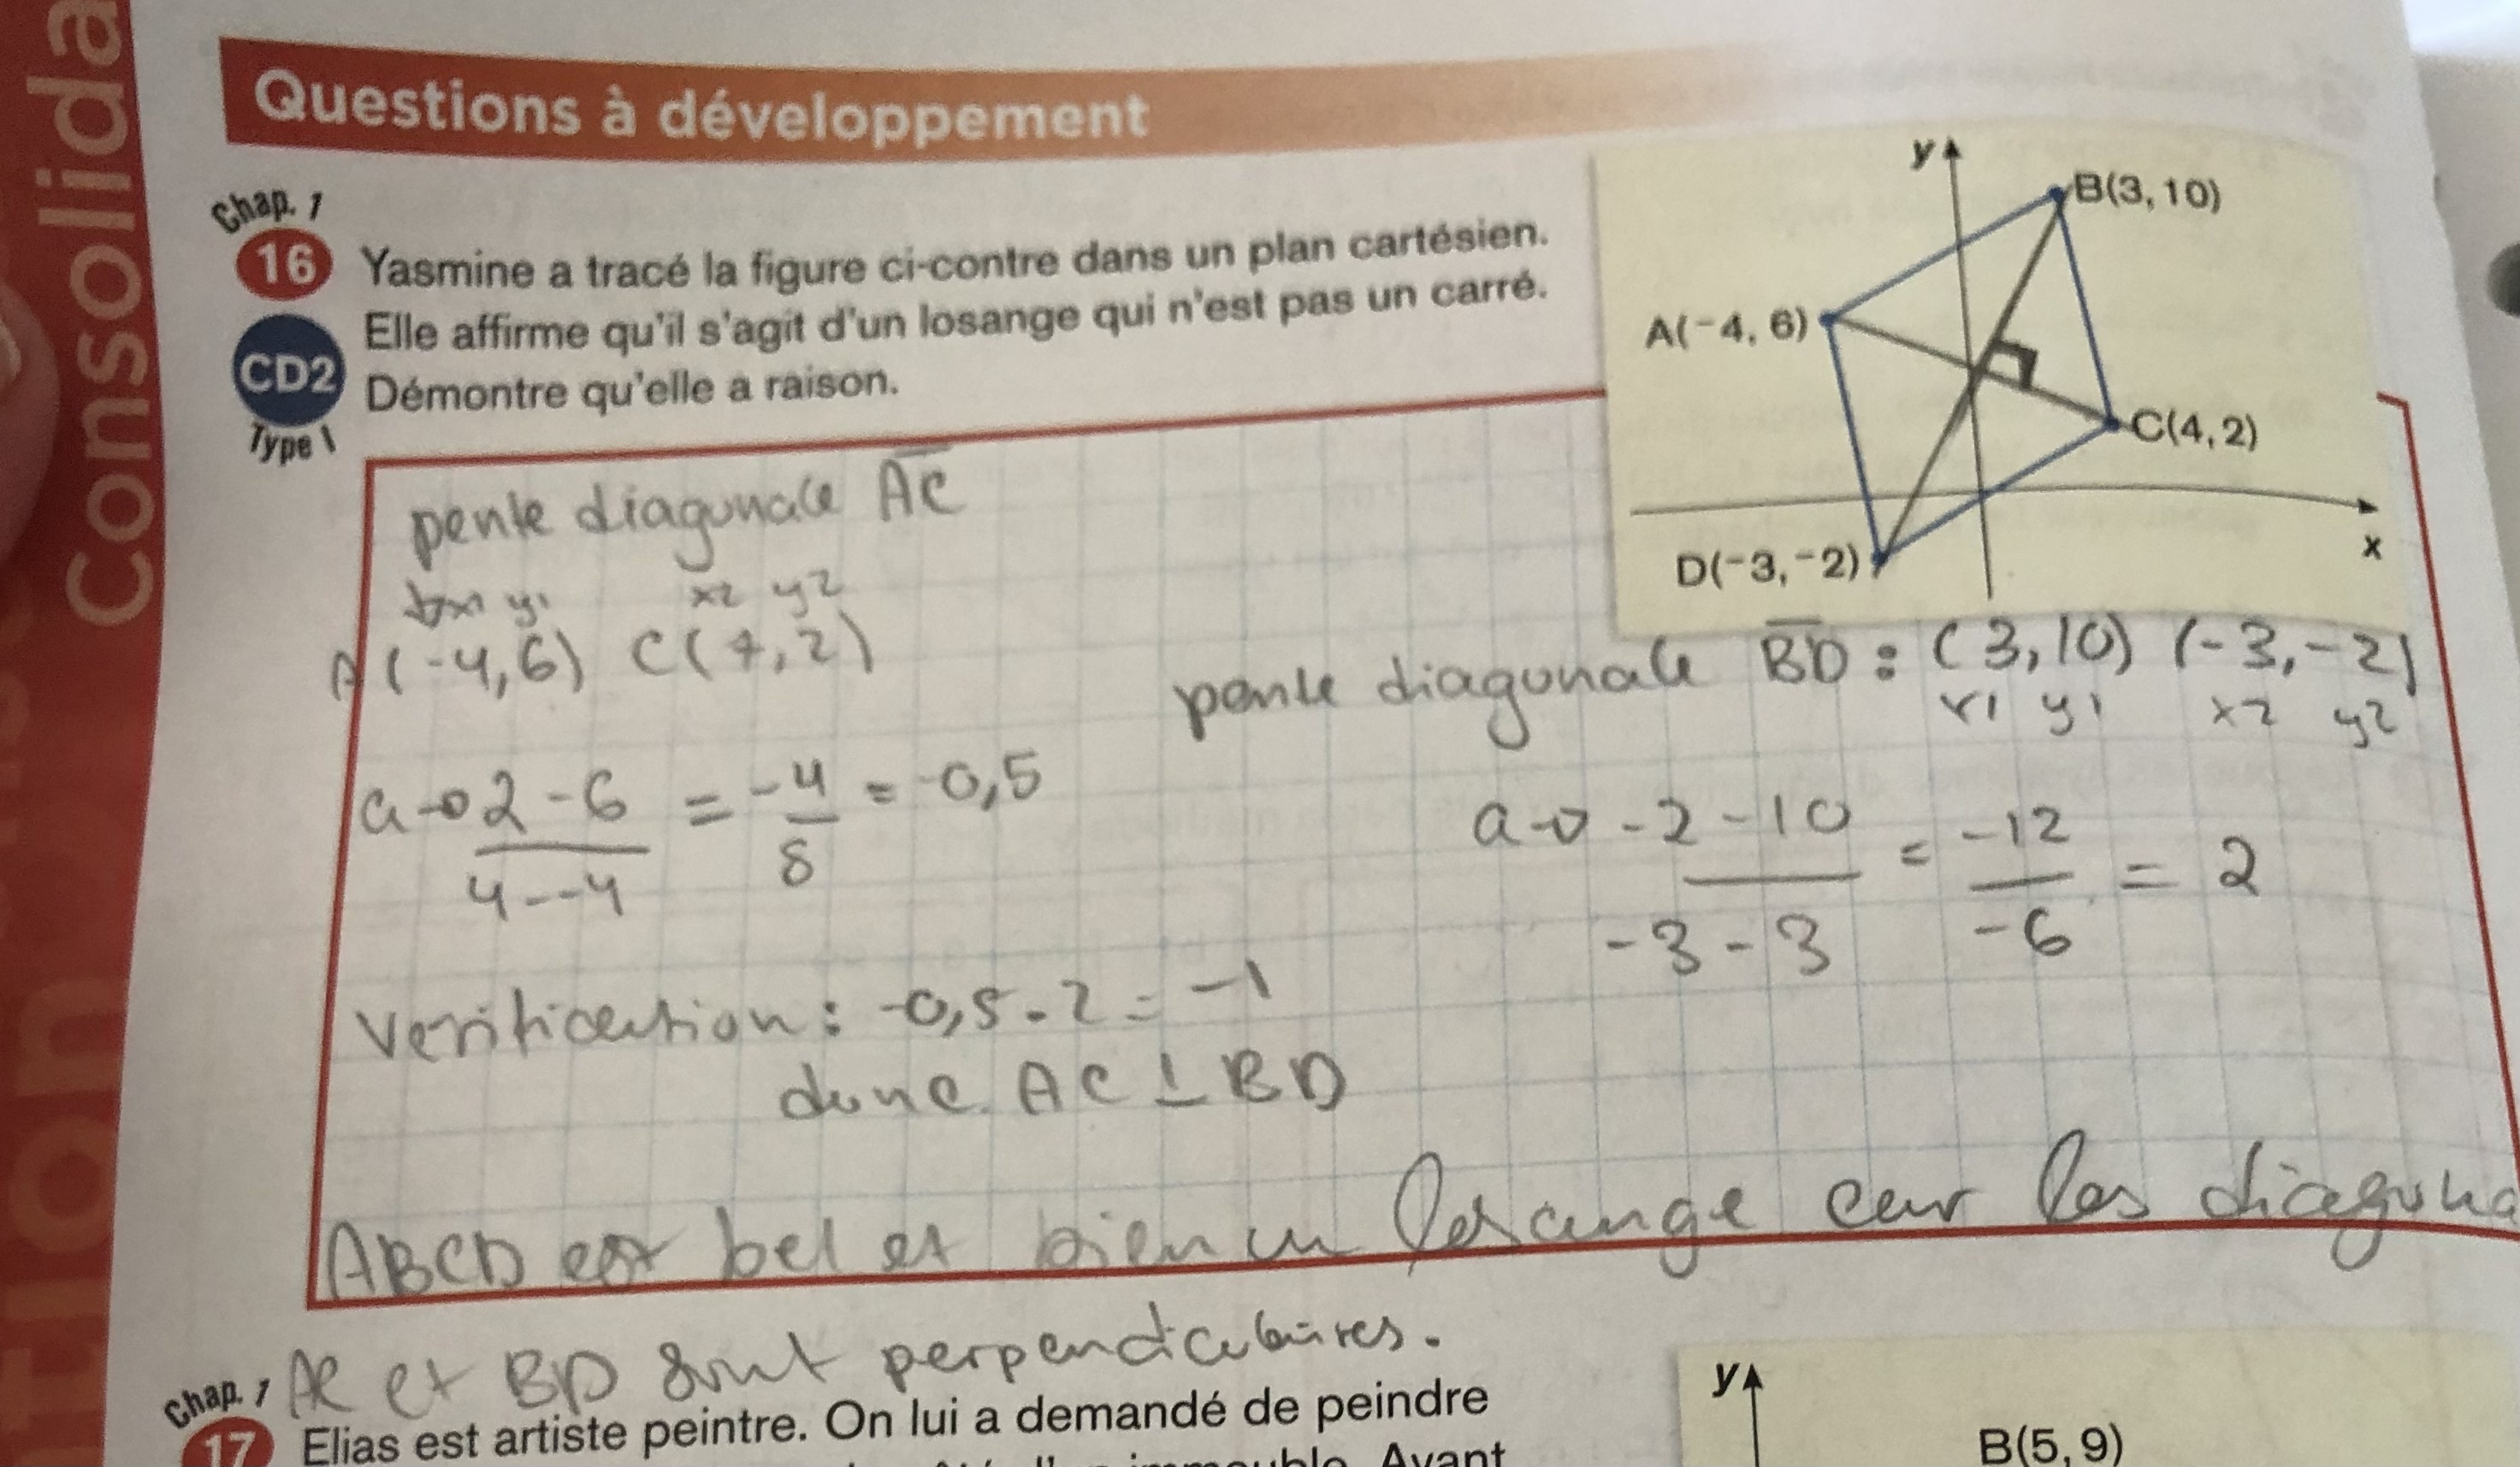 Consolida
tion
Questions à développement
Chap. 1
16 Yasmine a tracé la figure ci-contre dans un plan cartésien.
Elle affirme qu'il s'agit d'un losange qui n'est pas un carré.
CD2 Démontre qu'elle a raison.
Type 1
y
B(3, 10)
A(⁻4, 6)
C(4, 2)
D(⁻3, ⁻2)
x
pente diagonale AC
x1 y1 x2 y2
A(-4,6) C(4,2)
a→ 2-6 / 4--4 = -4/8 = -0,5
pente diagonale BD : (3,10) (-3,-2)
x1 y1 x2 y2
a→ -2-10 / -3-3 = -12/-6 = 2
Verification : -0,5 . 2 = -1
donc AC ⊥ BD
ABCD est bel et bien un losange car les diagona
AC et BD sont perpendiculaires.
Chap. 1
17 Elias est artiste peintre. On lui a demandé de peindre
immeuble. Avant
y
B(5, 9)